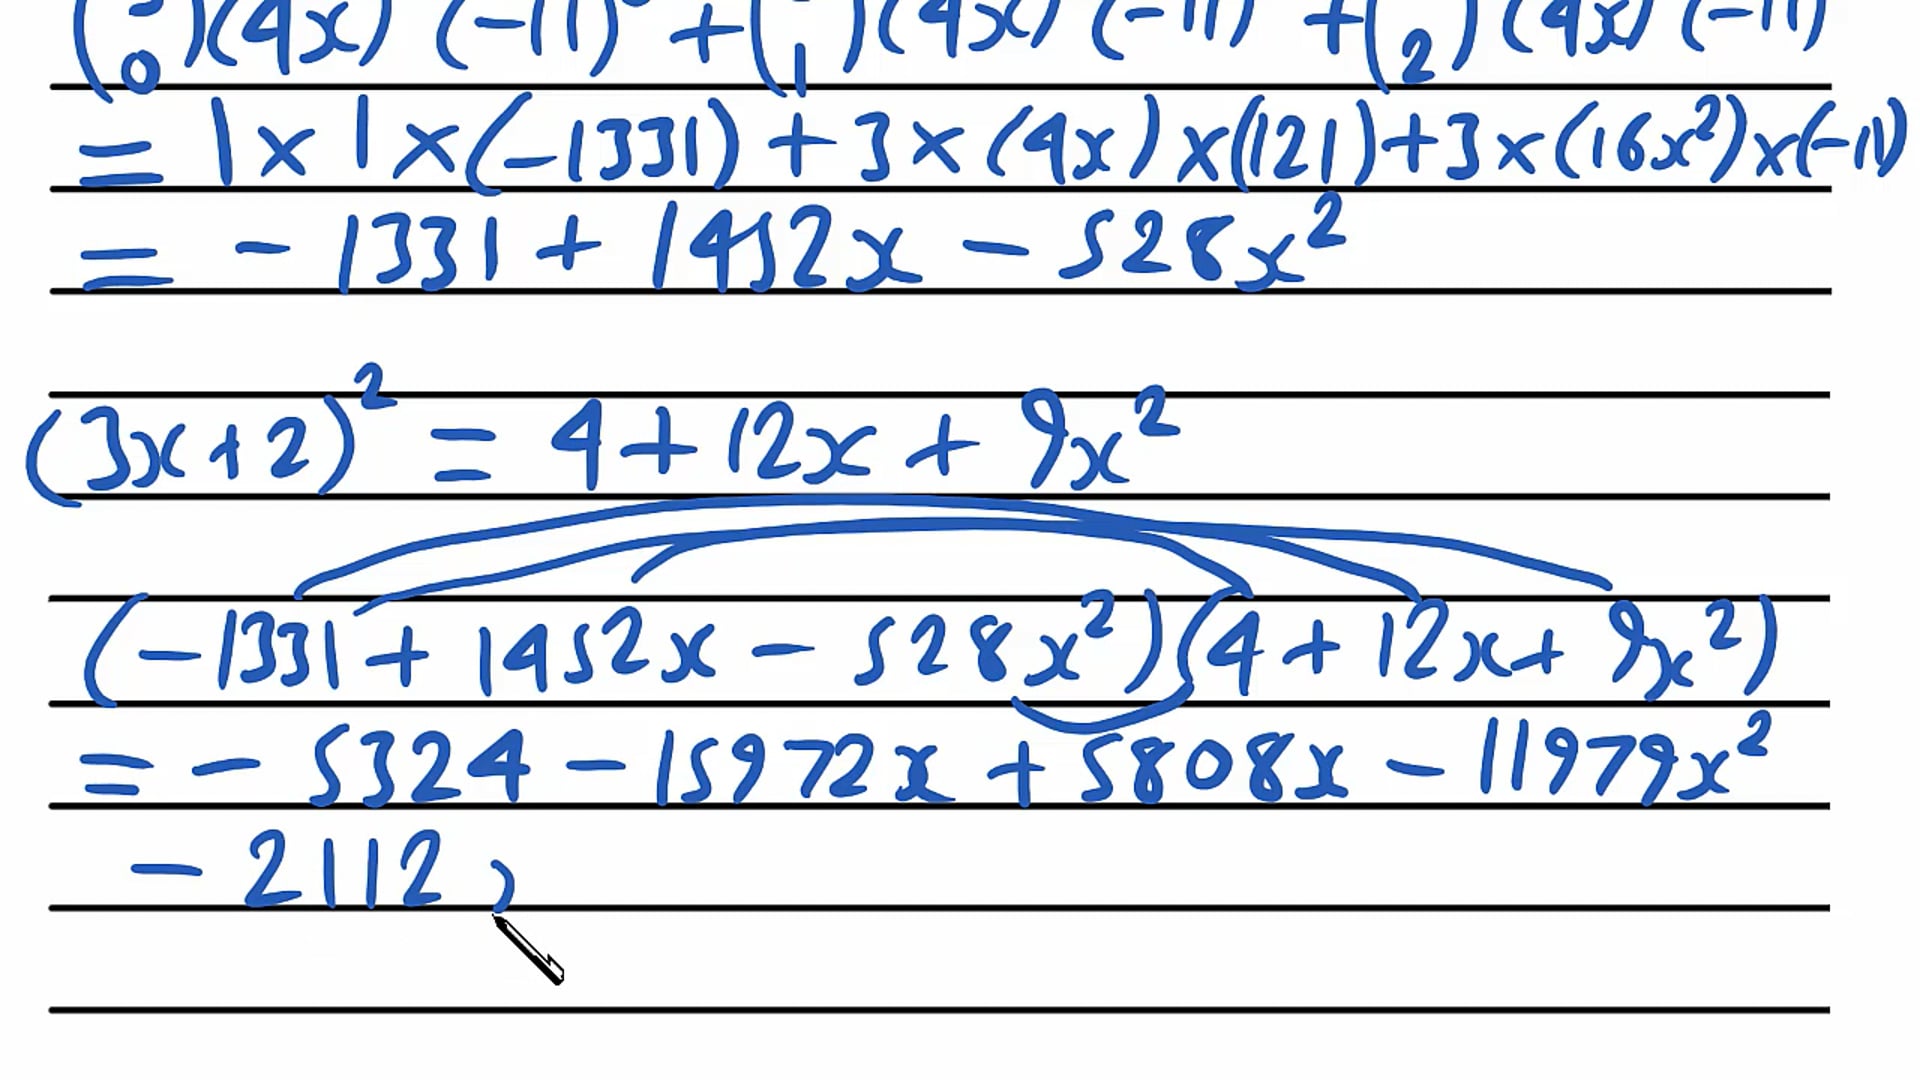 ( 0 )(4x) (-11) + ( 1 )(4x) (-11) + ( 2 )(4x) (-11)
= 1 × 1 × (-1331) + 3 × (4x) × (121) + 3 × (16x²) × (-11)
= - 1331 + 1452x - 528x²
(3x+2)² = 4 + 12x + 9x²
(-1331 + 1452x - 528x²)(4 + 12x + 9x²)
= - 5324 - 15972x + 5808x - 11979x²
- 2112